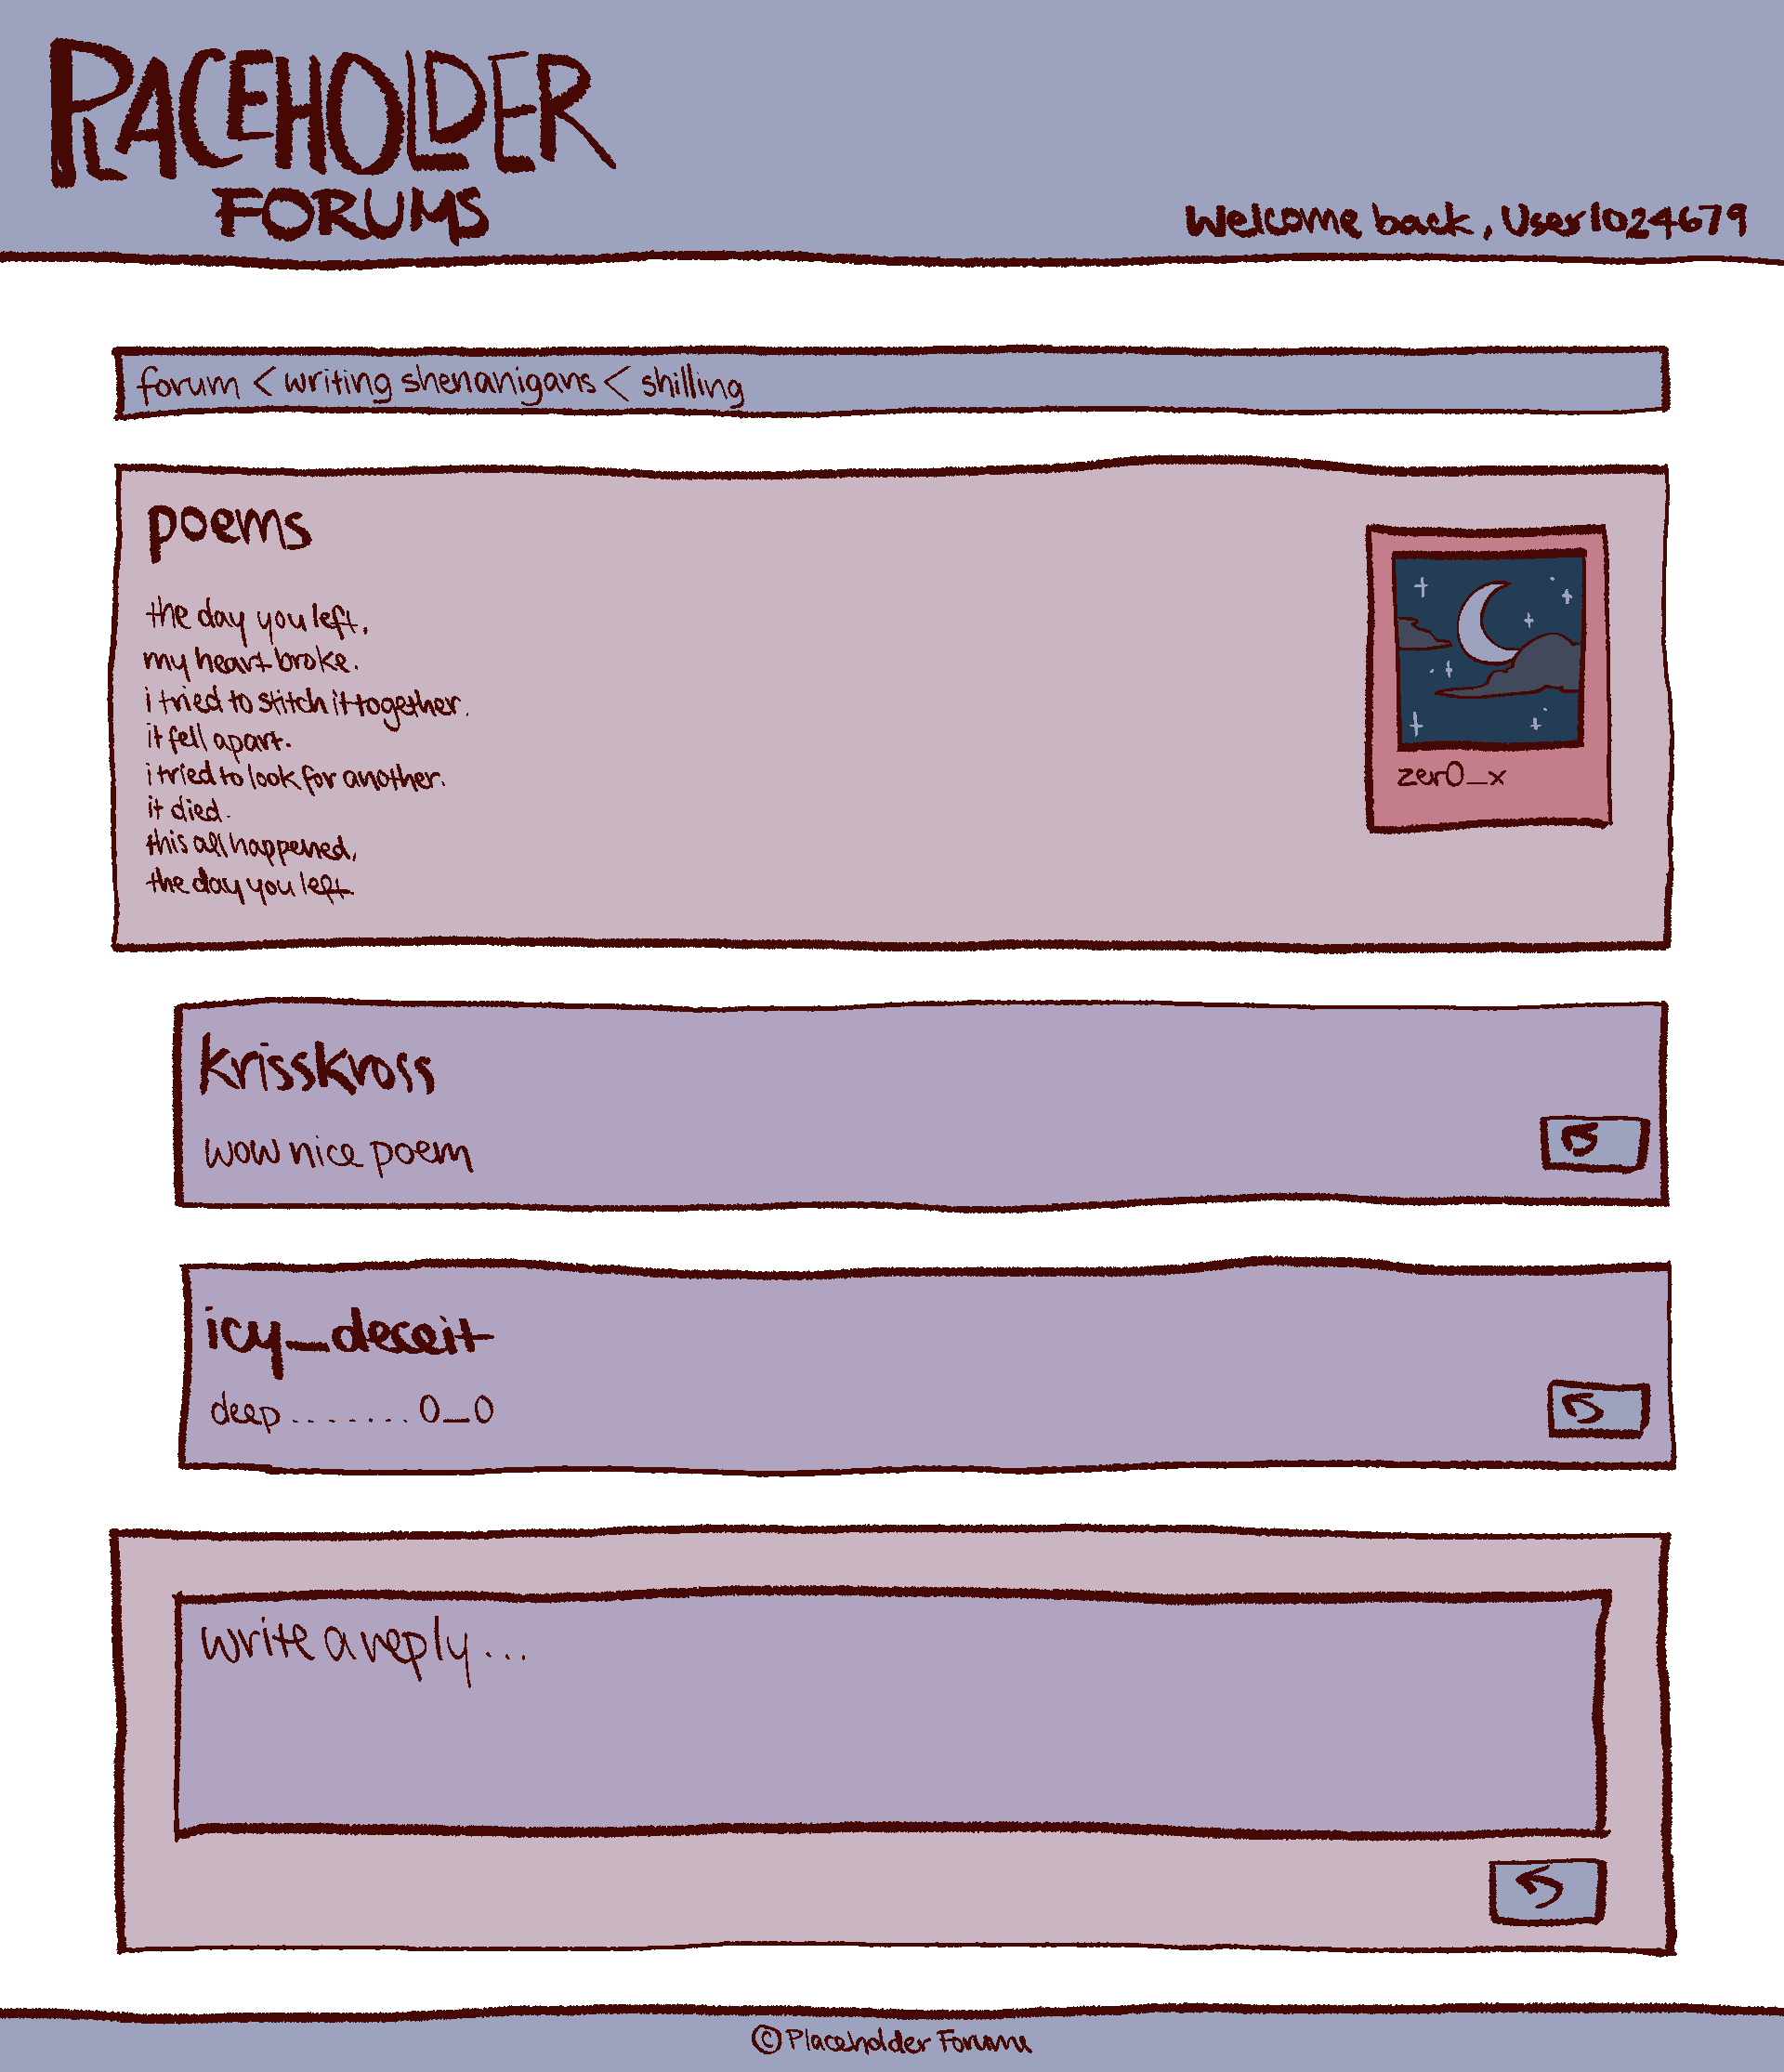 PLACEHOLDER
FORUMS
Welcome back, User1024679
forum < writing shenanigans < shilling
poems
the day you left,
my heart broke.
i tried to stitch it together.
it fell apart.
i tried to look for another.
it died.
this all happened,
the day you left.
zer0_x
krisskross
wow nice poem
icy_deceit
deep........0_0
write a reply...
© Placeholder Forums